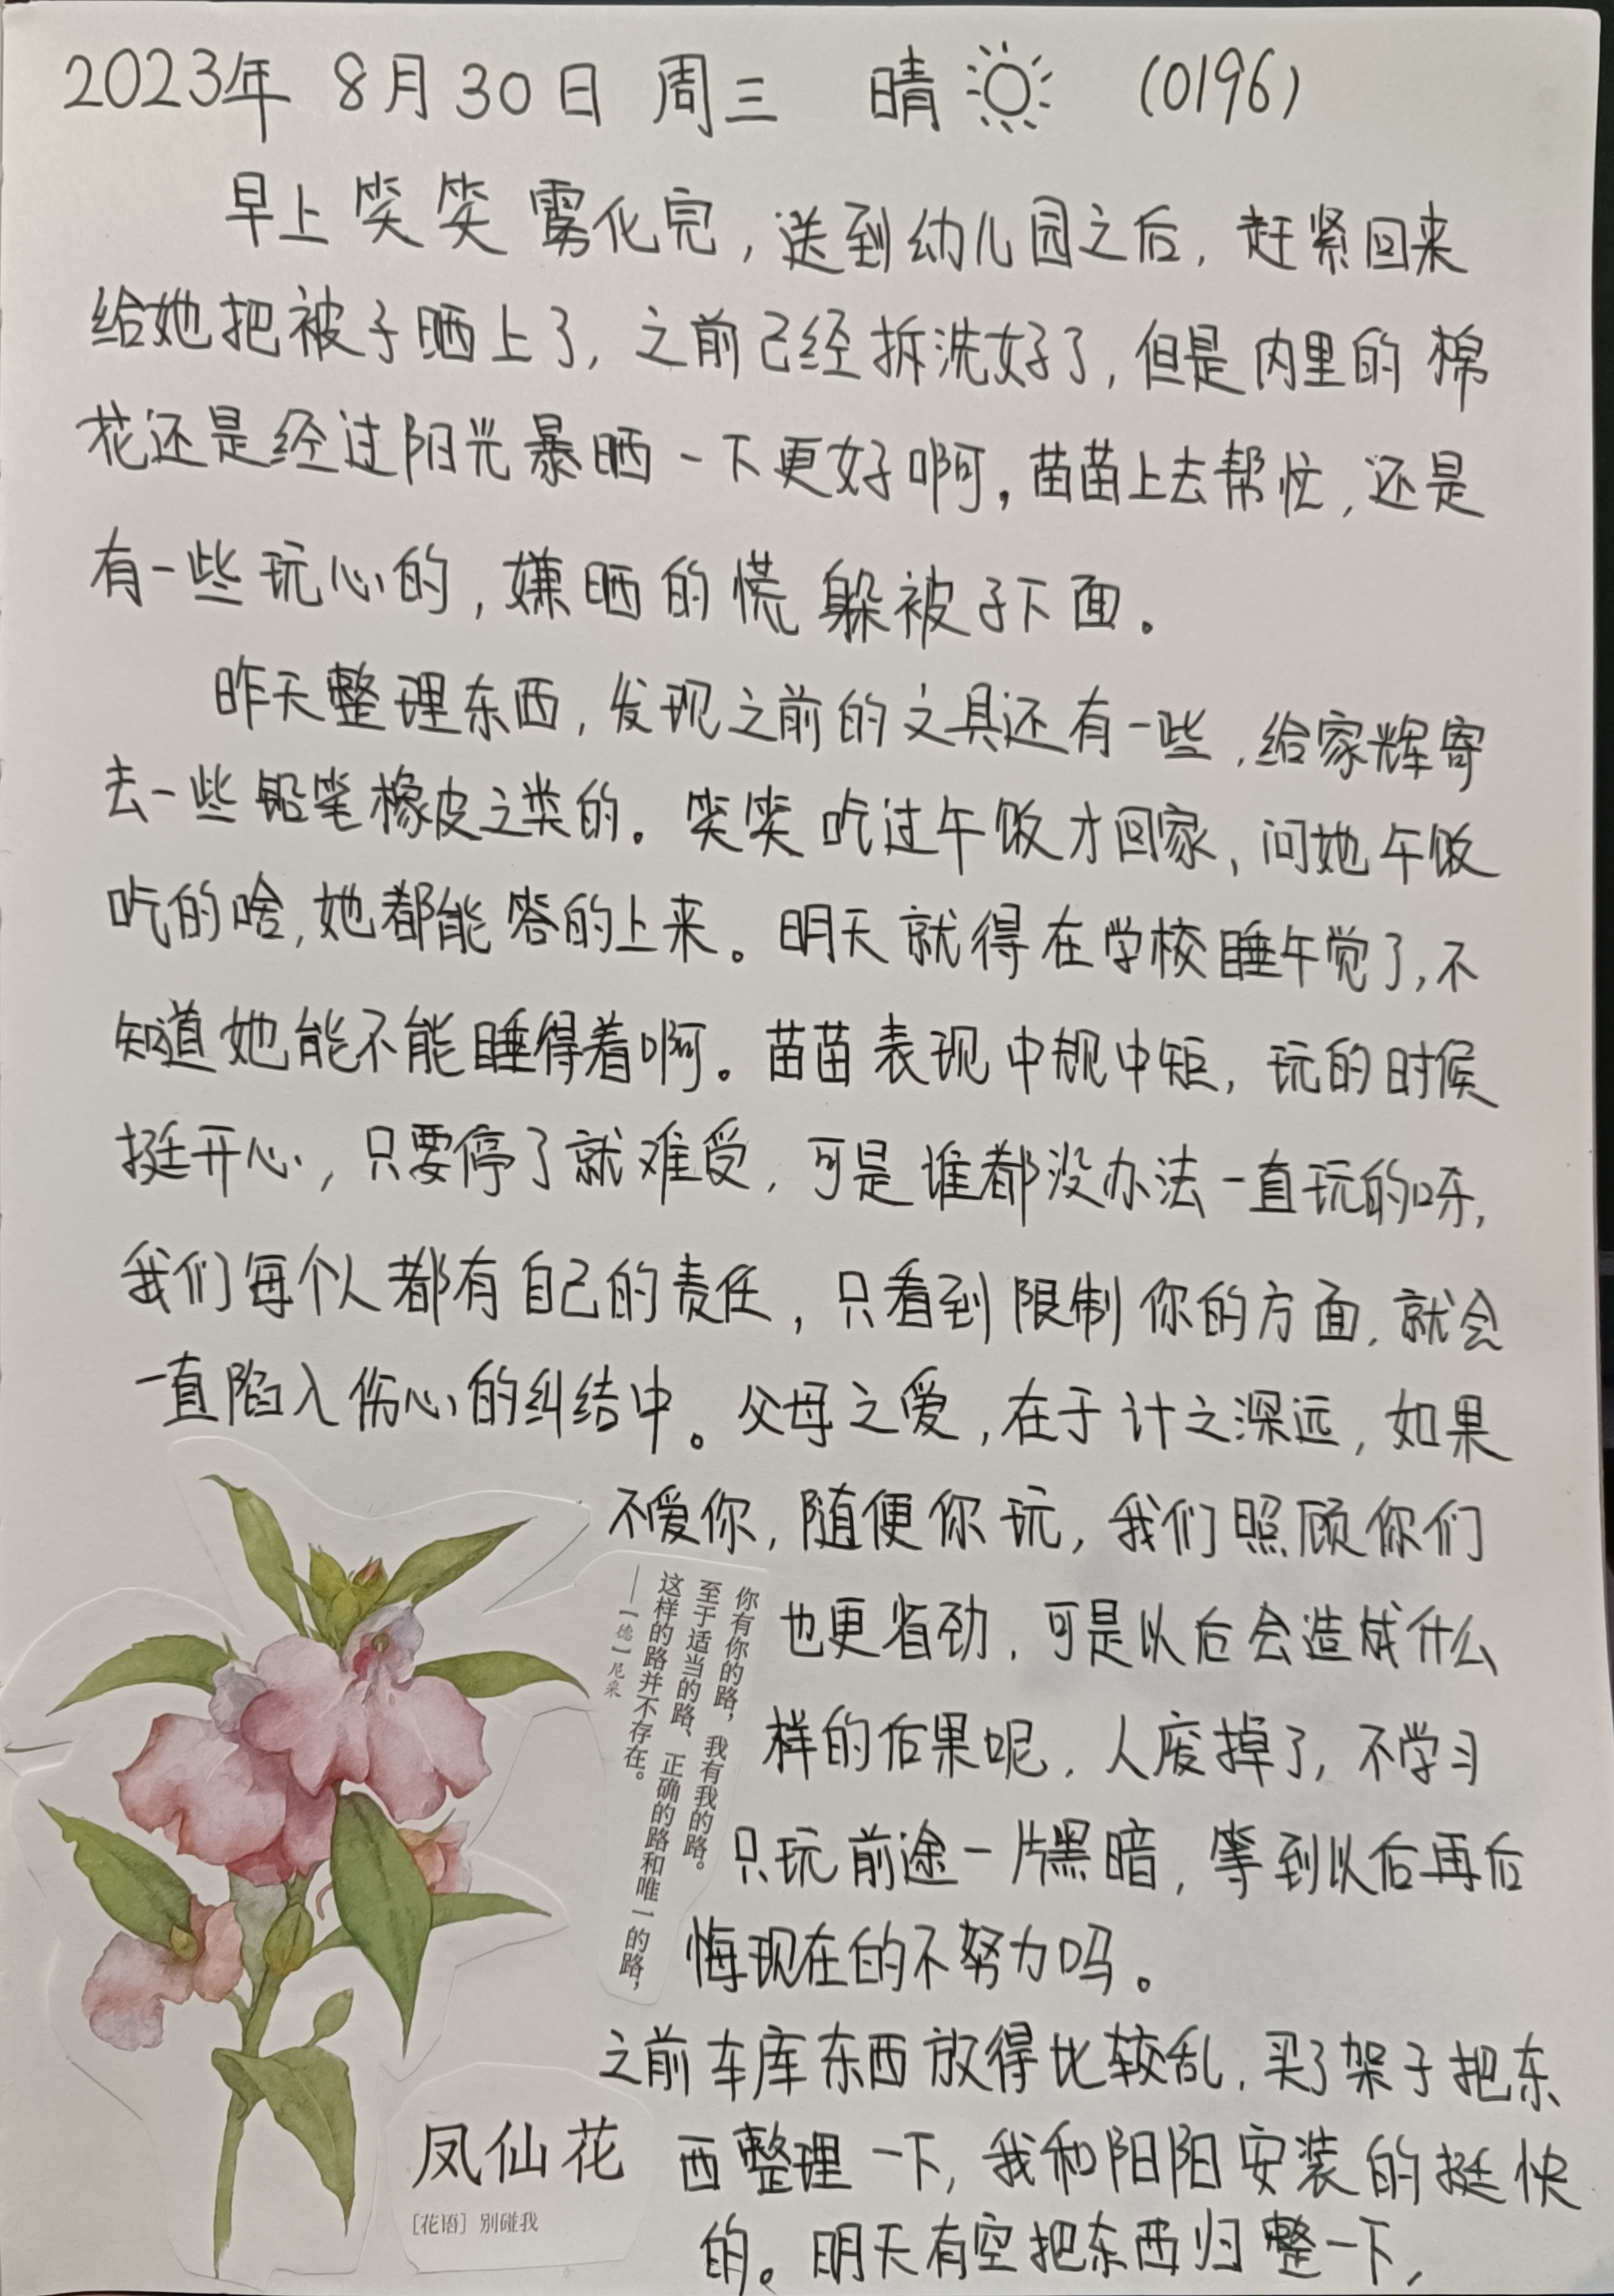 2023年 8月30日 周三 晴 (0196)
早上笑笑雾化完,送到幼儿园之后,赶紧回来
给她把被子晒上了,之前已经拆洗好了,但是内里的棉
花还是经过阳光暴晒一下更好啊。苗苗上去帮忙,还是
有一些玩心的,嫌晒的慌躲被子下面。
昨天整理东西,发现之前的文具还有一些,给家辉寄
去一些铅笔橡皮之类的。笑笑吃过午饭才回家,问她午饭
吃的啥,她都能答的上来。明天就得在学校睡午觉了,不
知道她能不能睡得着啊。苗苗表现中规中矩,玩的时候
挺开心,只要停了就难受,可是谁都没办法一直玩的呀,
我们每个人都有自己的责任,只看到限制你的方面,就会
一直陷入伤心的纠结中。父母之爱,在于计之深远,如果
不爱你,随便你玩,我们照顾你们
也更省劲,可是以后会造成什么
样的后果呢,人废掉了,不学习
只玩前途一片黑暗,等到以后再后
悔现在的不努力吗。
之前车库东西放得比较乱,买了架子把东
西整理一下,我和阳阳安装的挺快
的。明天有空把东西归整一下,
你有你的路,我有我的路。
至于适当的路、正确的路和唯一的路,
这样的路并不存在。
——[德]尼采
凤仙花
[花语] 别碰我